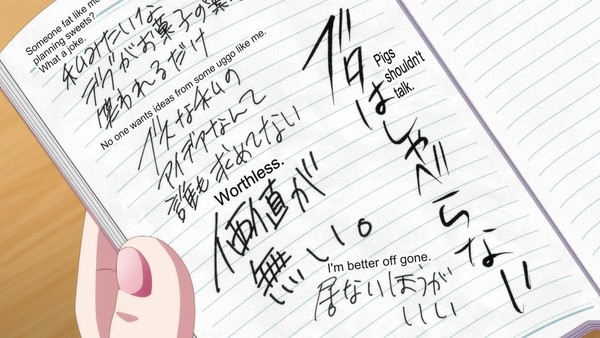 Someone fat like me
planning sweets?
What a joke.
私みたいな
デブがお菓子の案
笑われるだけ
No one wants ideas from some uggo like me.
ブスな私の
アイデアなんて
誰も求めてない
Worthless.
価値が
無い。
Pigs
shouldn't
talk.
ブタはしゃべらない
I'm better off gone.
居ないほうが
いい